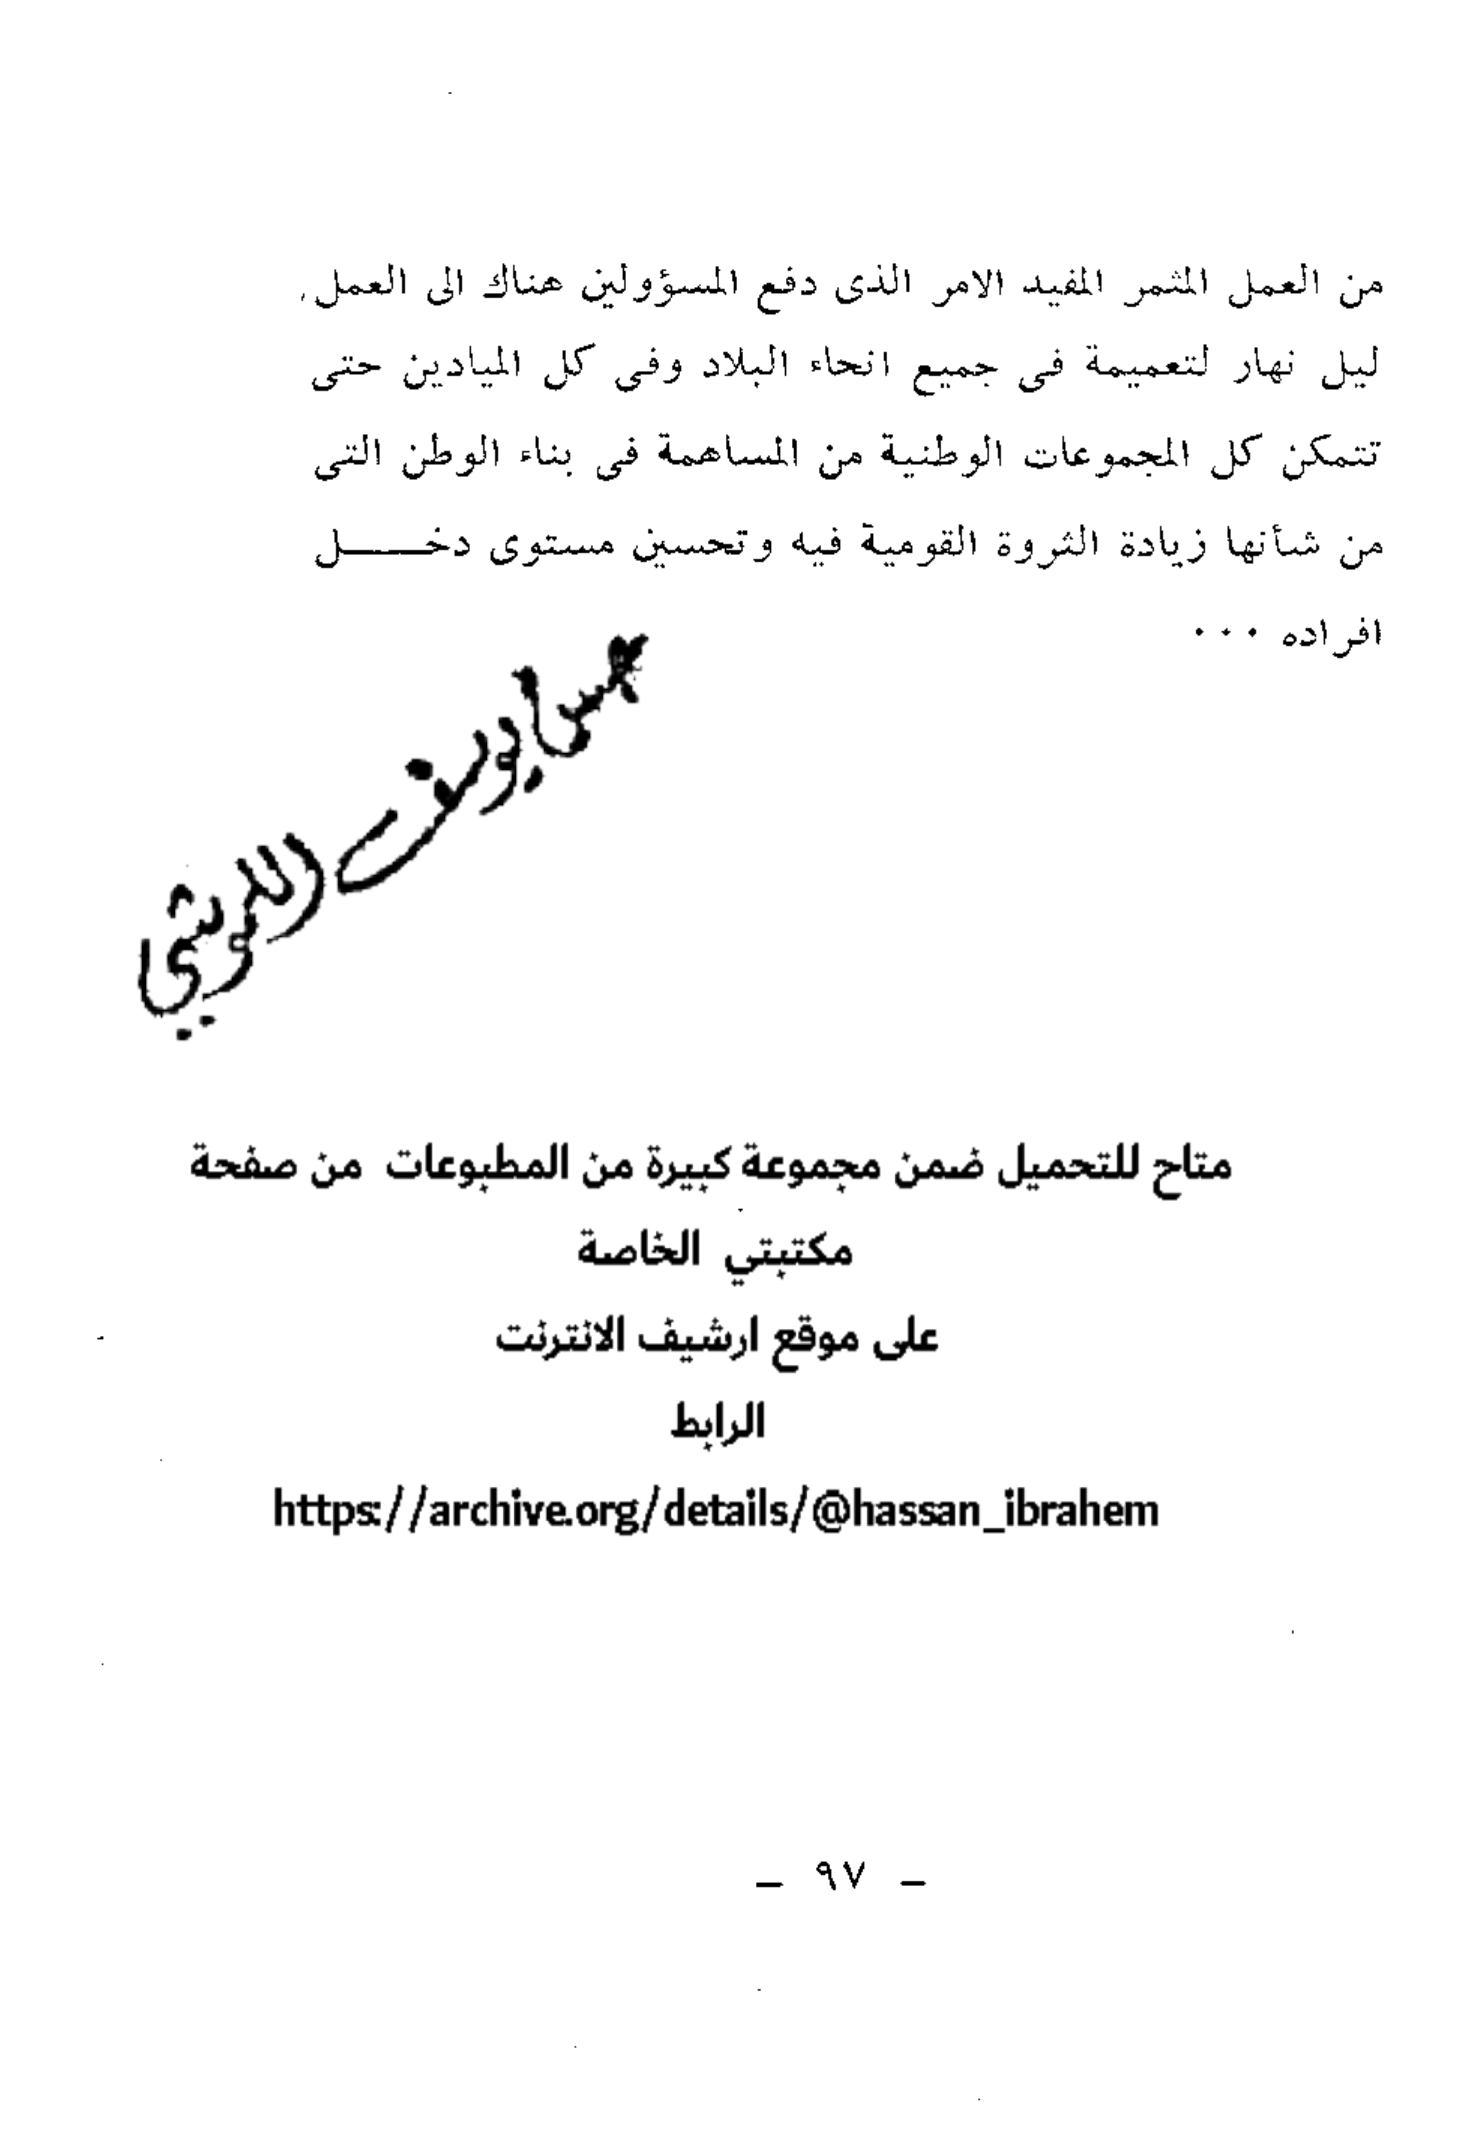 من العمل المثمر المفيد الامر الذى دفع المسؤولين هناك الى العمل
ليل نهار لتعميمة فى جميع انحاء البلاد وفى كل الميادين حتى
تتمكن كل المجموعات الوطنية من المساهمة فى بناء الوطن التى
من شأنها زيادة الثروة القومية فيه وتحسين مستوى دخـــــل
افراده ٠٠٠
يوسف
متاح للتحميل ضمن مجموعة كبيرة من المطبوعات من صفحة
مكتبتي الخاصة
على موقع ارشيف الانترنت
الرابط
https://archive.org/details/@hassan_ibrahem
– ٩٧ –